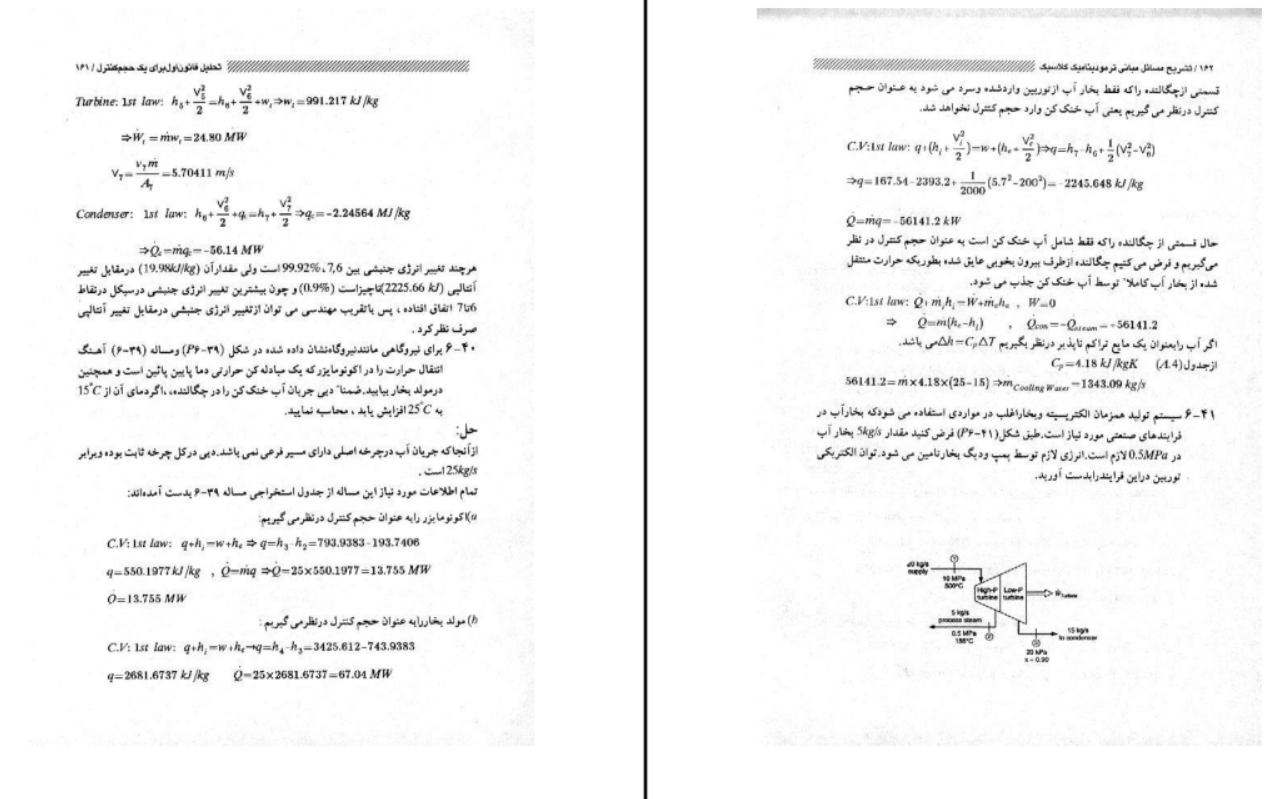 تحلیل قانون اول برای یک حجم کنترل / ۱۶۱
Turbine: 1st law: h₅+V₅²/2=h₆+V₆²/2+wₜ⇒wₜ=991.217 kJ/kg
⇒Ẇₜ=ṁwₜ=24.80 MW
V₇=v₇ṁ/A₇=5.70411 m/s
Condenser: 1st law: h₆+V₆²/2+q꜀=h₇+V₇²/2⇒q꜀=-2.24564 MJ/kg
⇒Q̇꜀=ṁq꜀=-56.14 MW
هرچند تغییر انرژی جنبشی بین 7,6، 99.92% است ولی مقدارآن (19.98kJ/kg) درمقابل تغییر
آنتالپی (2225.66 kJ)ناچیزاست (0.9%) و چون بیشترین تغییر انرژی جنبشی درسیکل درنقاط
6تا7 اتفاق افتاده ، پس باتقریب مهندسی می توان ازتغییر انرژی جنبشی درمقابل تغییر آنتالپی
صرف نظر کرد .
۶-۴۰ برای نیروگاهی مانندنیروگاه‌نشان داده شده در شکل (P۶-۳۹) ومساله (۶-۳۹) آهنگ
انتقال حرارت را در اکونومایزر که یک مبادله کن حرارتی دما پایین پائین است و همچنین
درمولد بخار بیابید.ضمنا" دبی جریان آب خنک کن را در چگالنده، ،اگردمای آن از 15°C
به 25°C افزایش یابد ، محاسبه نمایید.
حل:
ازآنجاکه جریان آب درچرخه اصلی دارای مسیر فرعی نمی باشد.دبی درکل چرخه ثابت بوده وبرابر
25kg/s است .
تمام اطلاعات مورد نیاز این مساله از جدول استخراجی مساله ۳۹-۶ بدست آمده‌اند:
a)اکونومایزر رابه عنوان حجم کنترل درنظرمی گیریم:
C.V: 1st law: q+hᵢ=w+hₑ⇒q=h₃-h₂=793.9383-193.7406
q=550.1977kJ/kg , Q̇=ṁq ⇒Q̇=25×550.1977=13.755 MW
Q̇=13.755 MW
b) مولد بخاررابه عنوان حجم کنترل درنظرمی گیریم :
C.V: 1st law: q+hᵢ=w+hₑ→q=h₄-h₃=3425.612-743.9383
q=2681.6737 kJ/kg Q̇=25×2681.6737=67.04 MW
۱۶۲ / تشریح مسائل مبانی ترمودینامیک کلاسیک
قسمتی ازچگالنده راکه فقط بخار آب ازتوربین واردشده وسرد می شود به عنوان حجم
کنترل درنظر می گیریم یعنی آب خنک کن وارد حجم کنترل نخواهد شد.
C.V:1st law: q+(hᵢ+Vᵢ²/2)=w+(hₑ+Vₑ²/2)⇒q=h₇-h₆+1/2(V₇²-V₆²)
⇒q=167.54-2393.2+1/2000(5.7²-200²)=-2245.648 kJ/kg
Q̇=ṁq=-56141.2 kW
حال قسمتی از چگالنده راکه فقط شامل آب خنک کن است به عنوان حجم کنترل در نظر
می‌گیریم و فرض می کنیم چگالنده ازطرف بیرون بخوبی عایق شده بطوریکه حرارت منتقل
شده از بخار آب کاملا" توسط آب خنک کن جذب می شود.
C.V:1st law: Q̇+ṁᵢhᵢ=Ẇ+ṁₑhₑ , Ẇ=0
⇒ Q̇=ṁ(hₑ-hᵢ) , Q̇con=-Q̇steam=+56141.2
اگر آب رابعنوان یک مایع تراکم ناپذیر درنظر بگیریم Δh=CₚΔTمی باشد.
ازجدول(A.4) Cₚ=4.18 kJ/kgK
56141.2=ṁ×4.18×(25-15) ⇒ṁCooling Water=1343.09 kg/s
۶-۴۱ سیستم تولید همزمان الکتریسیته وبخاراغلب در مواردی استفاده می شودکه بخارآب در
فرایندهای صنعتی مورد نیاز است.طبق شکل(P۶-۴۱) فرض کنید مقدار 5kg/s بخار آب
در 0.5MPa لازم است.انرژی لازم توسط پمپ ودیگ بخارتامین می شود.توان الکتریکی
توربین دراین فرایندرابدست آورید.
20 kg/s
supply
①
10 MPa
500°C
High-P turbine
Low-P turbine
Ẇ Turbine
5 kg/s
process steam
0.5 MPa
155°C
②
③
15 kg/s
to condenser
20 kPa
x = 0.90